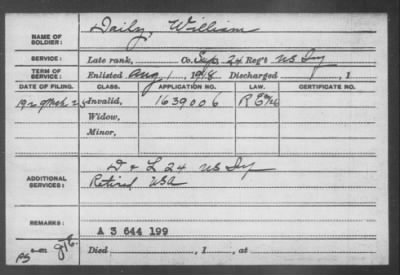 NAME OF SOLDIER: Daily, William
SERVICE: Late rank, Co. Sup. 24 Reg't US Inf
TERM OF SERVICE: Enlisted Aug 1, 1918 Discharged , 1
DATE OF FILING. CLASS. APPLICATION NO. LAW. CERTIFICATE NO.
Invalid, 1639006
Widow,
Minor,
ADDITIONAL SERVICES: D & L 24 US Inf
Retired USA
REMARKS: A 3 644 199
Died , 1 , at